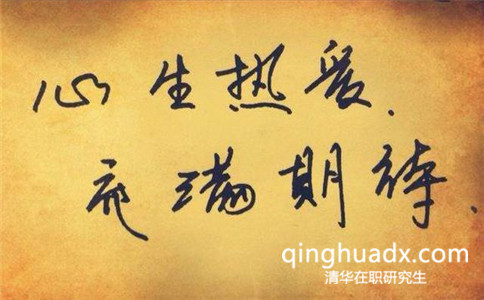 心生热爱.
充满期待.
qinghuadx.com
清华在职研究生